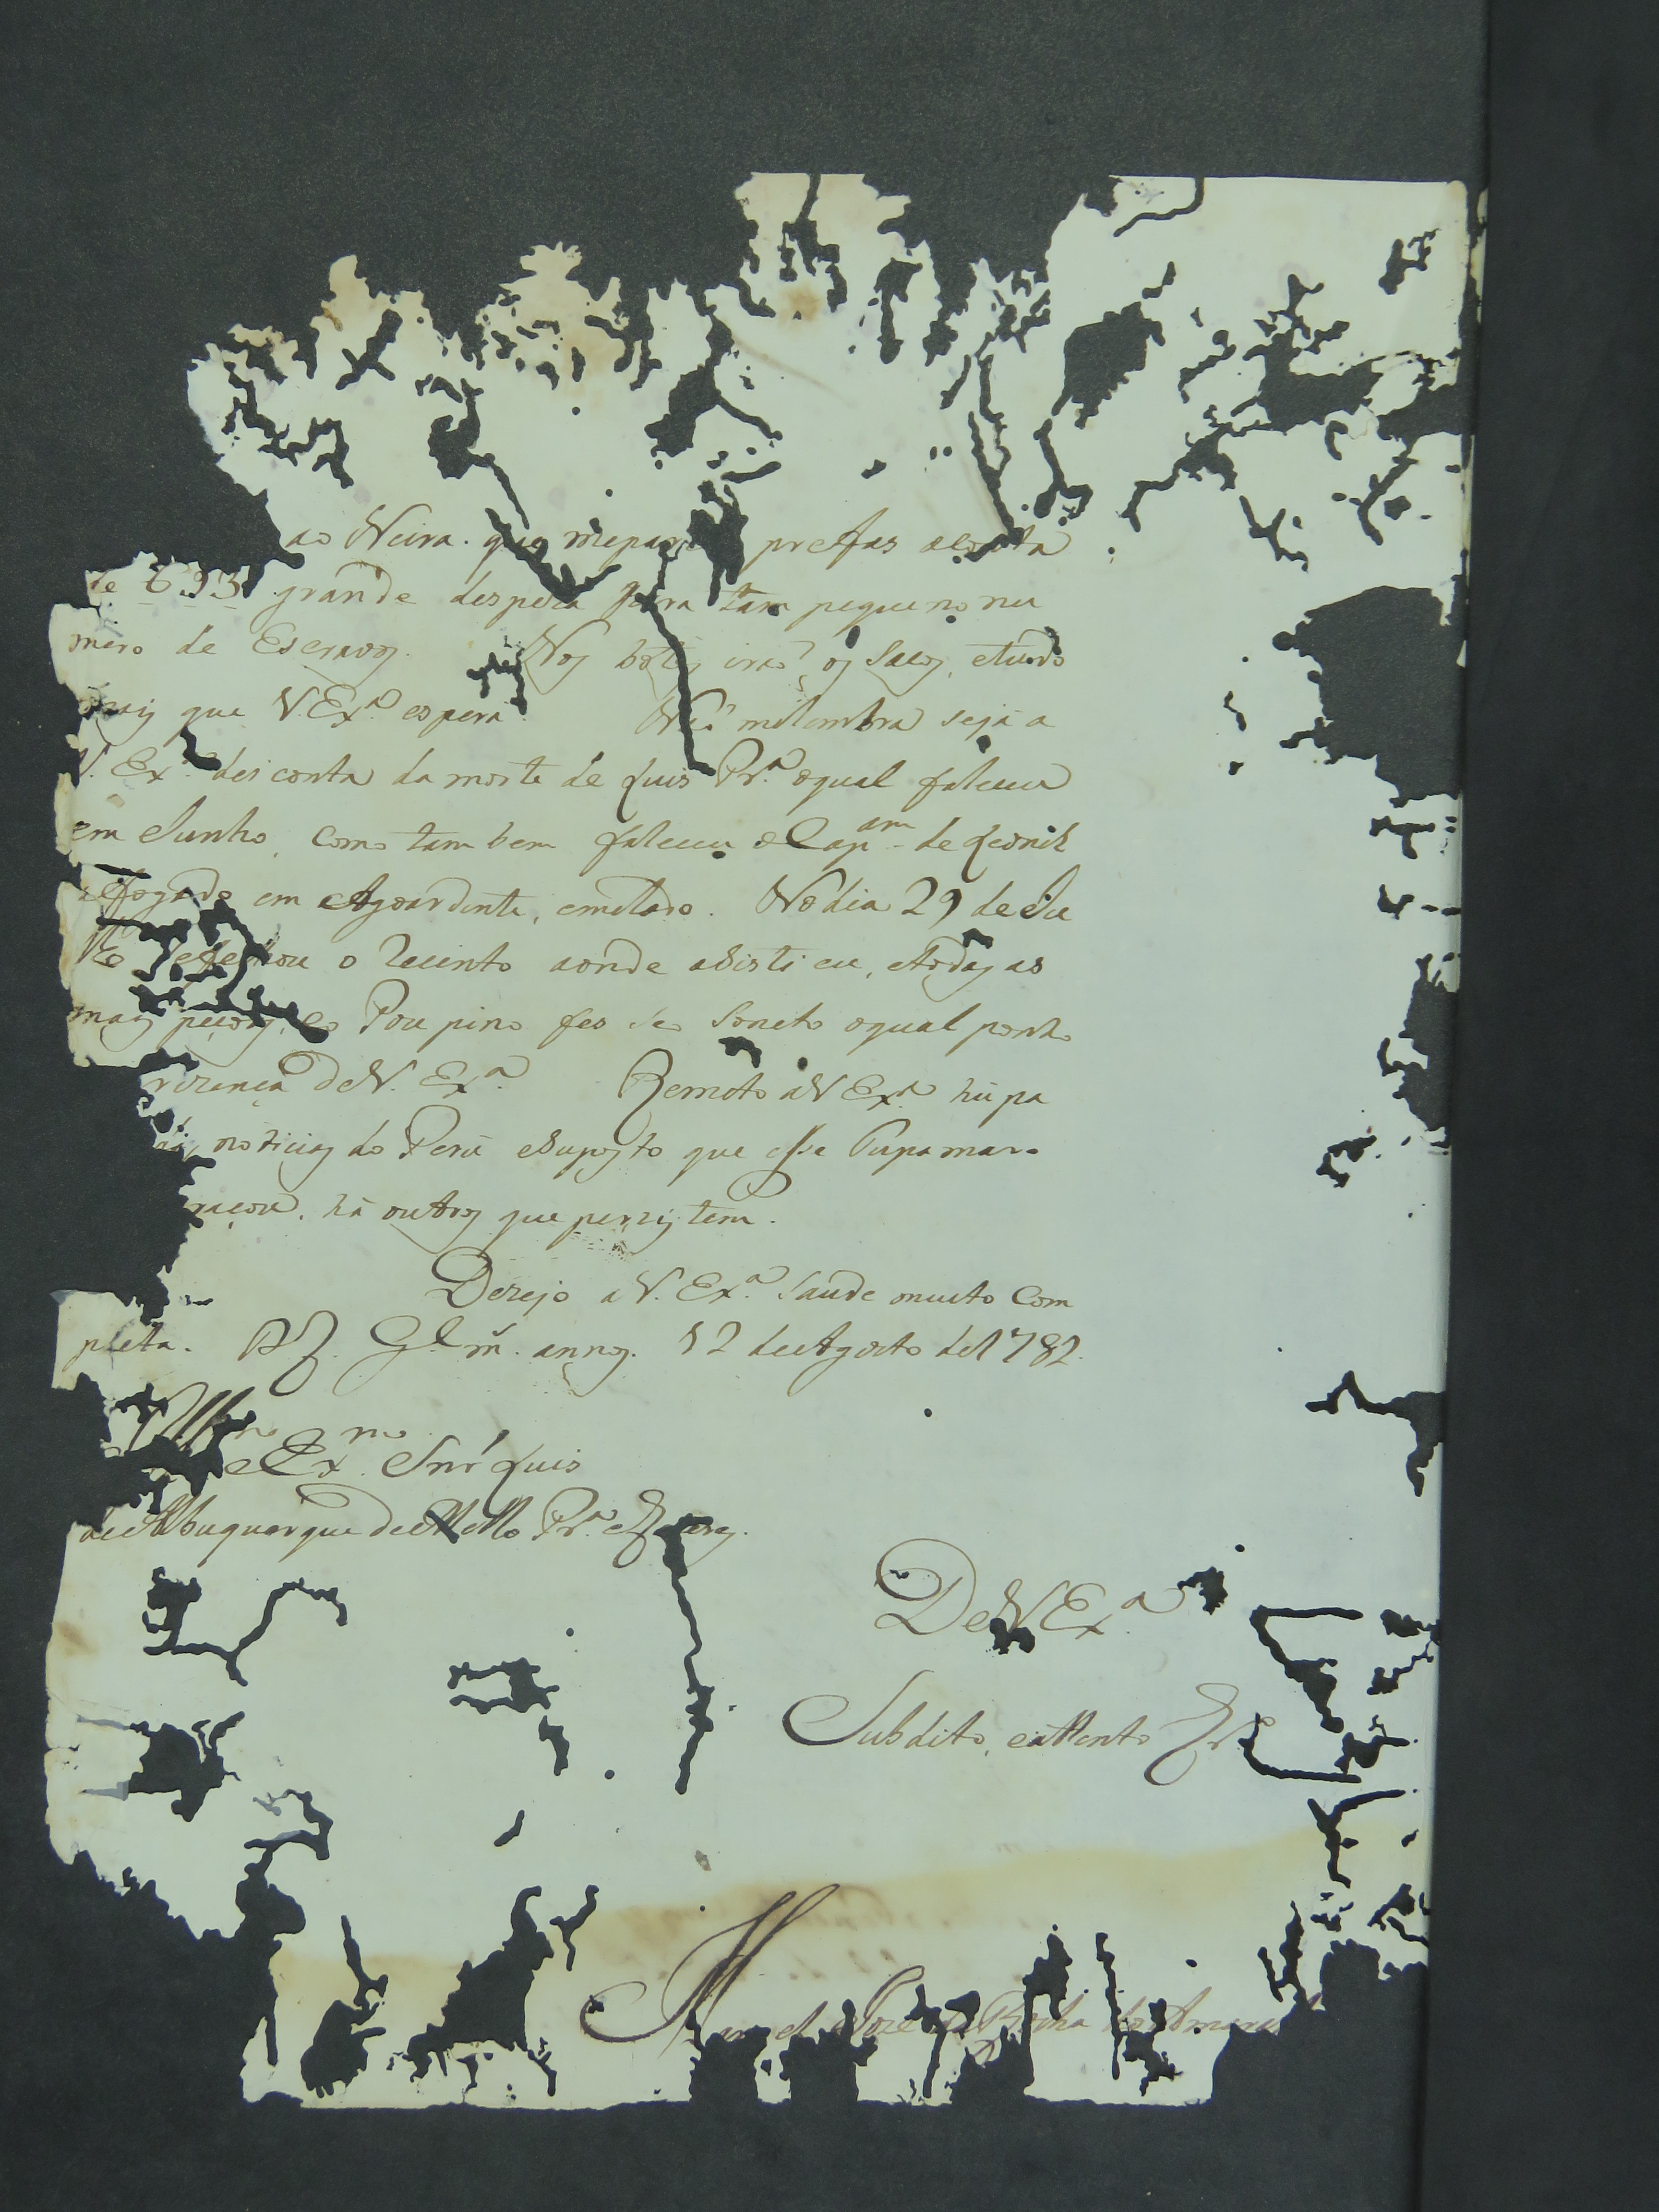 ao Neira. que mepare prestas aconta
de 693 grande despeza para tam pequeno nu
mero de Escravos. Nos botes irão os Sacos, etudo
mais que V. Ex.ª espera Não melembra seja a
V. Ex.ª dei conta da morte de Luis Pr.ª oqual faleceu
em Junho, como tam bem faleceu o Cap.am de
afogado em Agoardente, emelado. No dia 29 de Ju
lho sefechou o Recinto aonde asisti eu, etodas as
mais pecoas, eo Poupino fes seo Soneto oqual ponho
na prezença de V. Ex.ª Remeto a V Ex.ª hú pa
noticias do Perú esuposto que esse Tupamaro
há outros que perzistem.
Dezejo a V. Ex.ª Saude muito Com
pleta. D.s G.e m. annos. 12 de Agosto de 1782.
Ill.mo e Ex.mo Snr Luis
de Albuquerque de Mello Pr.ª e Caceres.
De V Ex.ª
Subdito, eattento
Manoel Joze da Rocha do Amaral